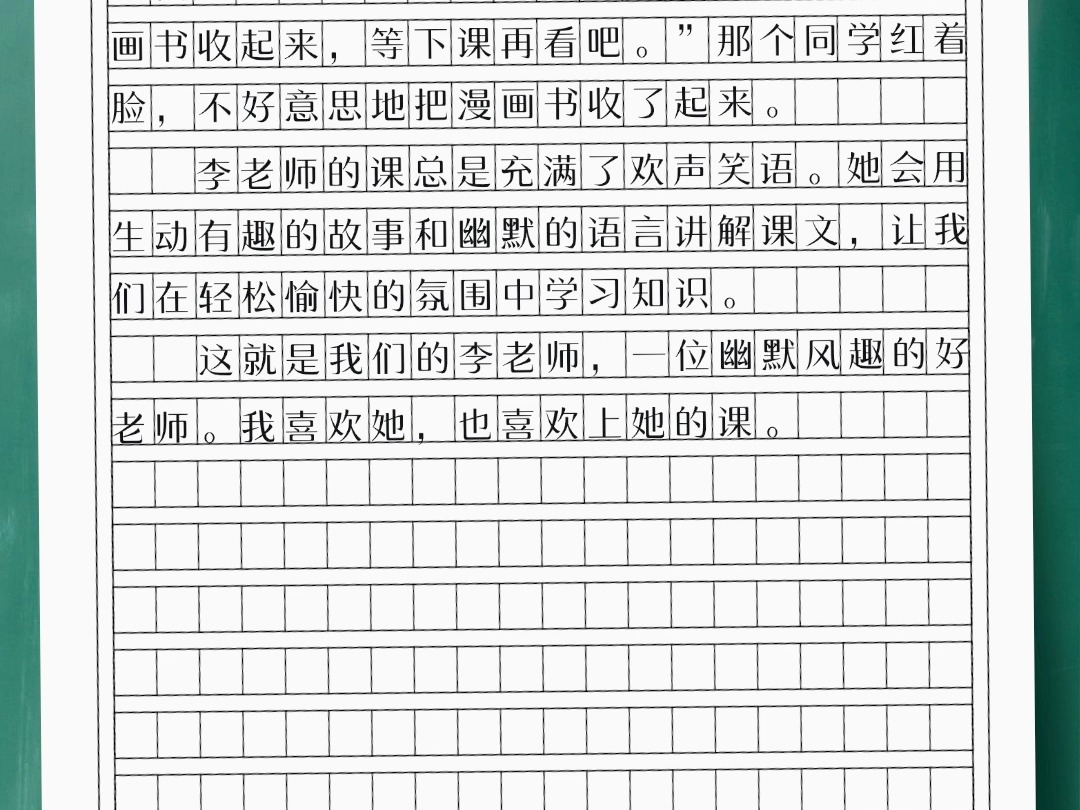 画书收起来，等下课再看吧。”那个同学红着
脸，不好意思地把漫画书收了起来。
李老师的课总是充满了欢声笑语。她会用
生动有趣的故事和幽默的语言讲解课文，让我
们在轻松愉快的氛围中学习知识。
这就是我们的李老师，一位幽默风趣的好
老师。我喜欢她，也喜欢上她的课。